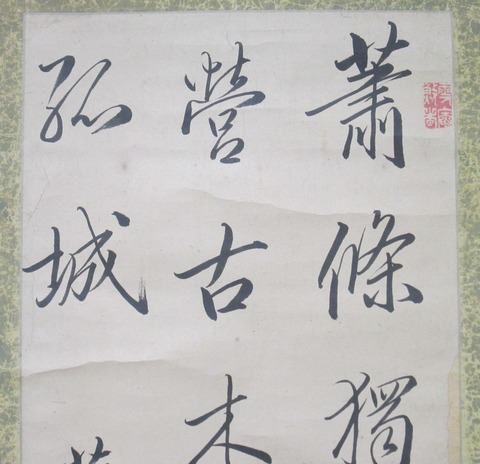 蕭條獨
營古木
孤城